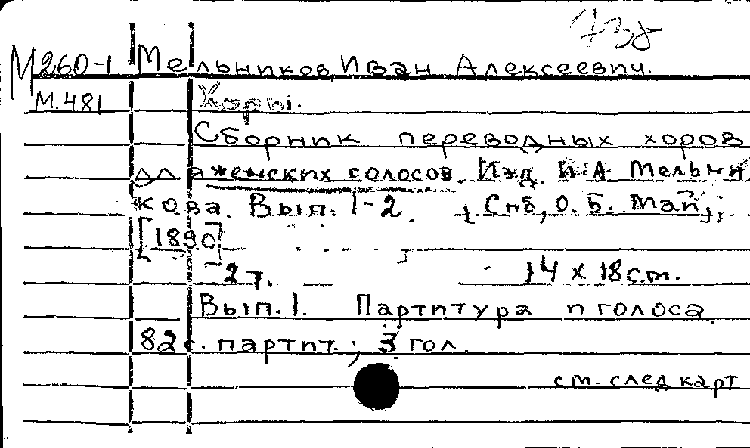 М260-1 Мельников, Иван Алексеевич.
М.481 Хоры.
Сборник переводных хоров
для женских голосов. Изд. И.А Мельни
кова. Вып. 1-2. Спб, О. Б. Май,
[1890]
2 т. 14 х 18 с.т.
Вып. 1. Партитура и голоса.
82 с. партит.; 3 гол.
см. след карт